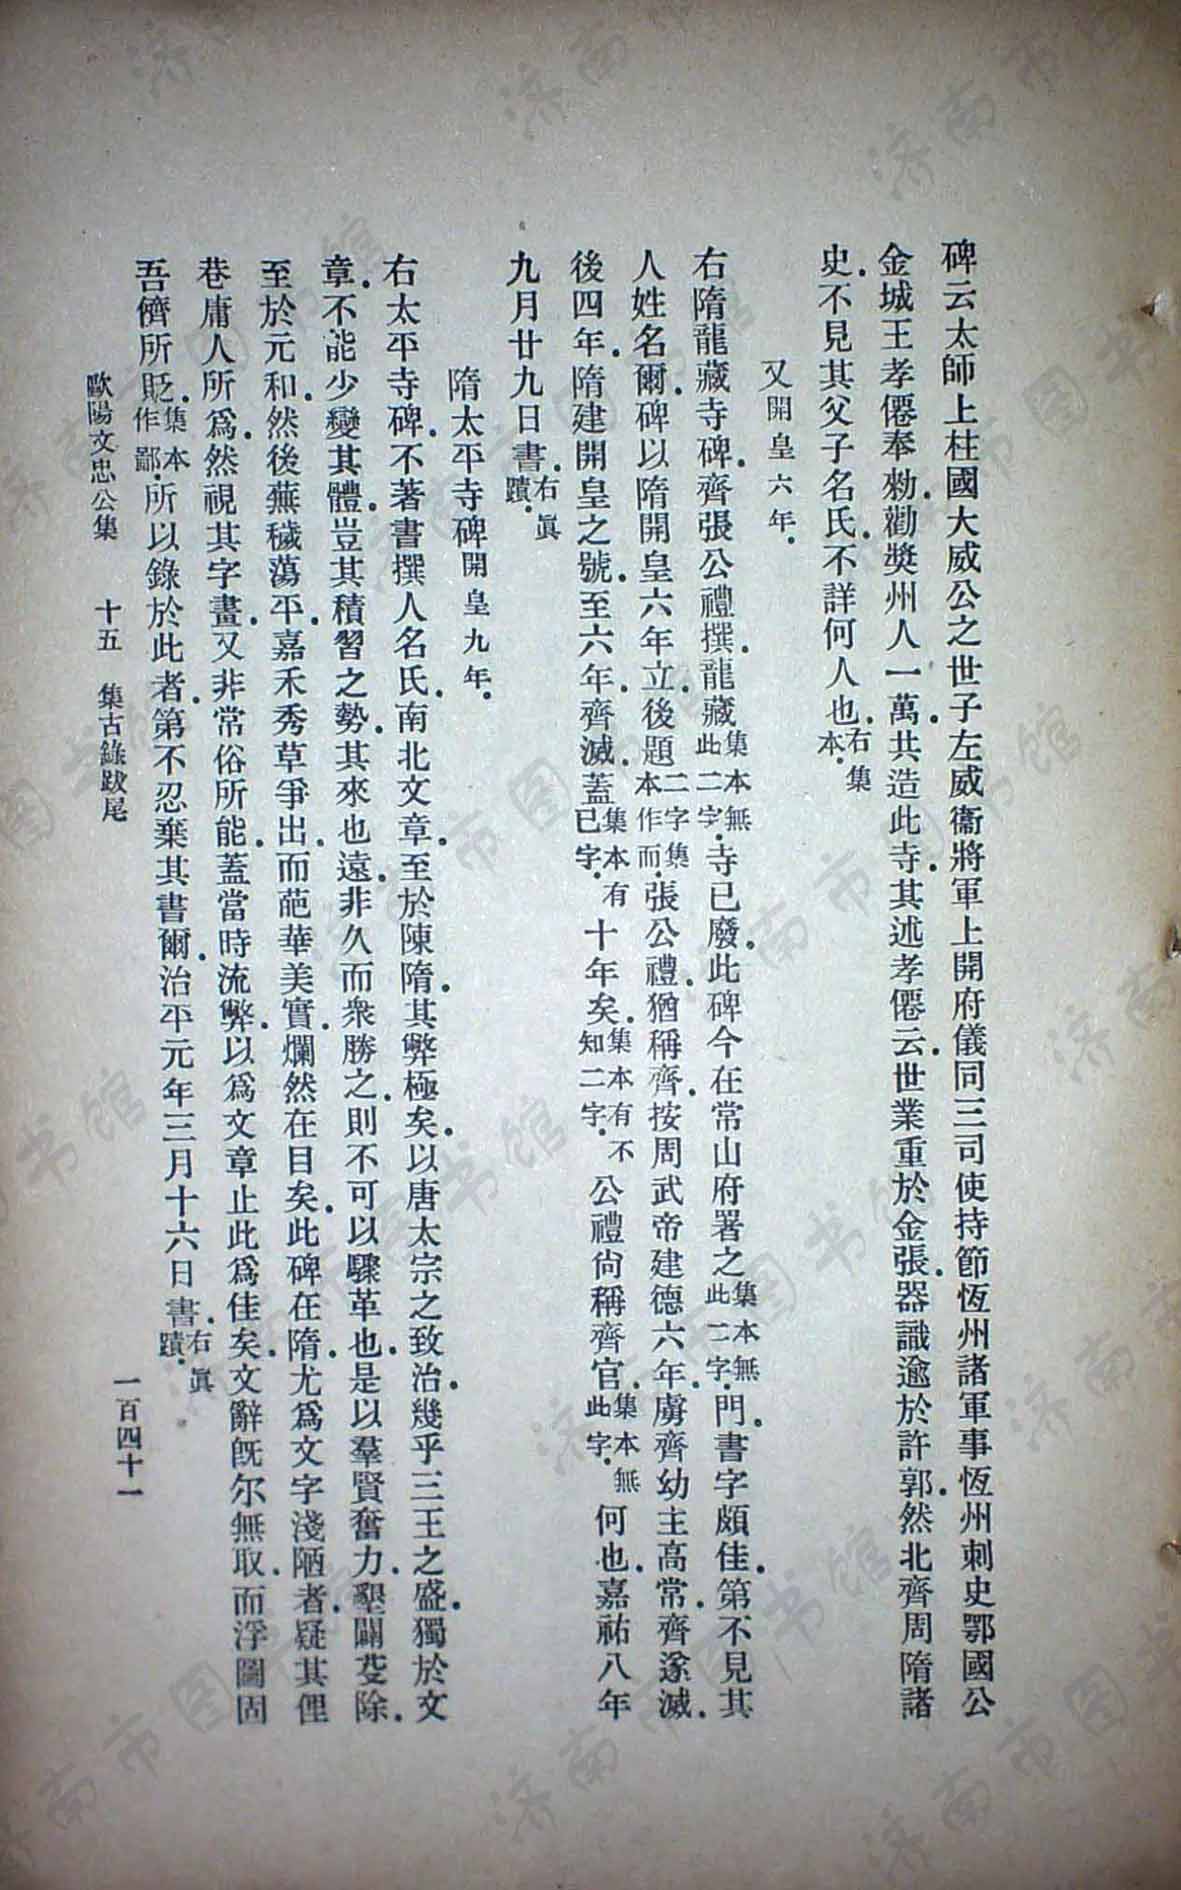 碑云太師上柱國大威公之世子左威衞將軍上開府儀同三司使持節恆州諸軍事恆州刺史鄂國公
金城王孝僊奉勑.勸奬州人一萬.共造此寺.其述孝僊云.世業重於金張.器識逾於許郭.然北齊周隋諸
史.不見其父子名氏.不詳何人也.右集本.
又開皇六年.
右隋龍藏寺碑.齊張公禮撰.龍藏集本無此二字.寺已廢.此碑今在常山府署之集本無此二字.門.書字頗佳.第不見其
人姓名爾.碑以隋開皇六年立.後題二字集本作而.張公禮.猶稱齊.按周武帝建德六年.虜齊幼主高常.齊遂滅.
後四年.隋建開皇之號.至六年.齊滅.蓋集本有已字.十年矣.集本有不知二字.公禮尙稱齊官.集本無此字.何也.嘉祐八年
九月廿九日書.右眞蹟.
隋太平寺碑開皇九年.
右太平寺碑.不著書撰人名氏.南北文章.至於陳隋.其弊極矣.以唐太宗之致治.幾乎三王之盛.獨於文
章.不能少變其體.豈其積習之勢.其來也遠.非久而衆勝之.則不可以驟革也.是以羣賢奮力.墾闢芟除.
至於元和.然後蕪穢蕩平.嘉禾秀草爭出.而葩華美實.爛然在目矣.此碑在隋.尤爲文字淺陋者.疑其俚
巷庸人所爲.然視其字畫.又非常俗所能.蓋當時流弊.以爲文章止此爲佳矣.文辭旣尔無取.而浮圖固
吾儕所貶.集本作鄙.所以錄於此者.第不忍棄其書爾.治平元年三月十六日書.右眞蹟.
歐陽文忠公集 十五 集古錄跋尾 一百四十一
济南市图书馆